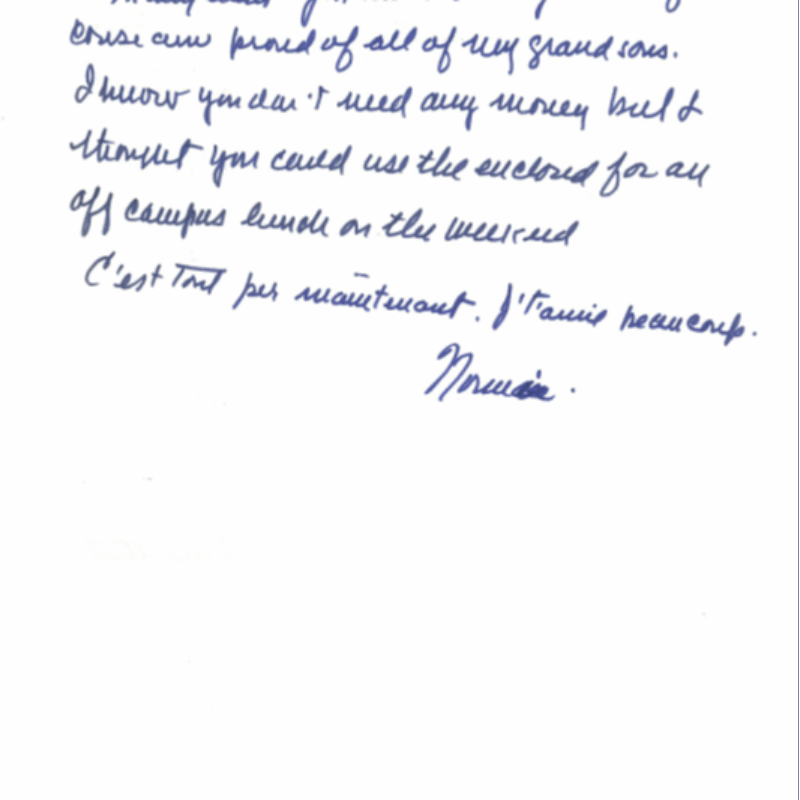 course am proud of all of my grandsons.
I know you don't need any money but I
thought you could use the enclosed for an
off campus lunch on the weekend
C'est tout per maintenant. J't'amie beaucoup.